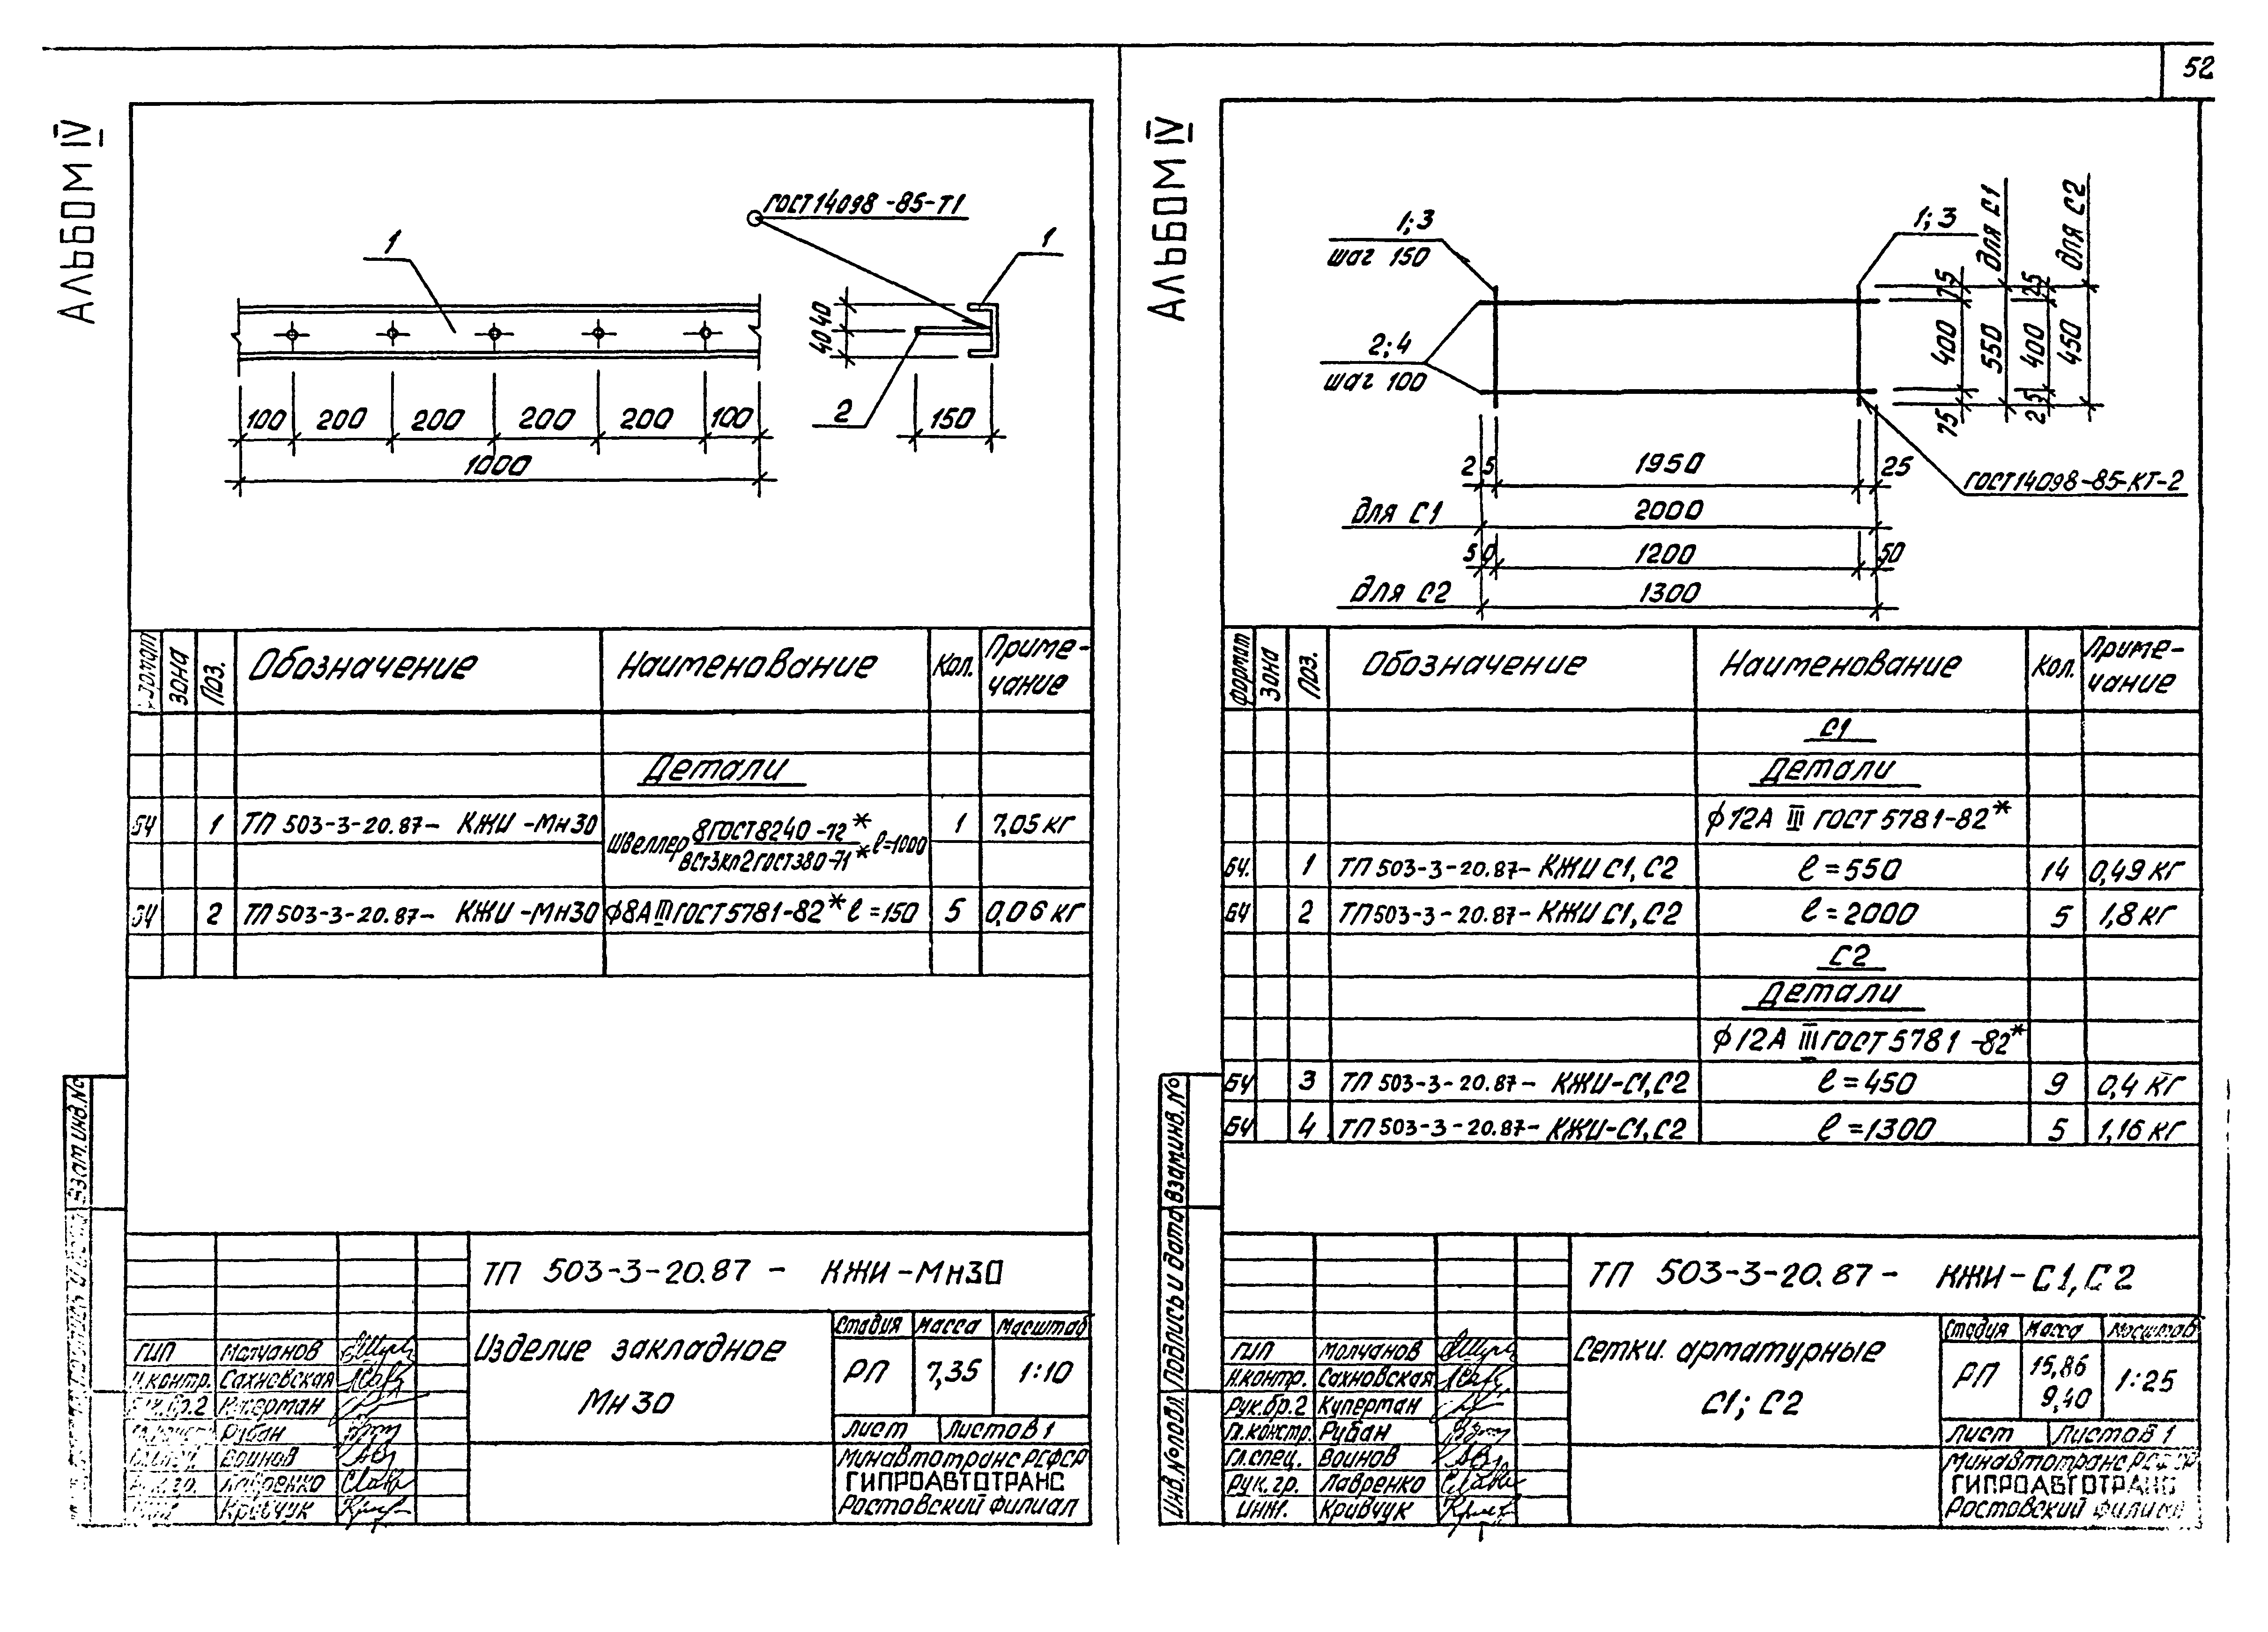 52
АЛЬБОМ IV
ГОСТ 14098-85-Т1
1
1
40 40
2
150
100 200 200 200 200 100
1000
Формат Зона Поз. Обозначение Наименование Кол. Приме-
чание
Детали
БЧ 1 ТП 503-3-20.87- КЖИ-Мн30 Швеллер 8 ГОСТ 8240-72* l=1000 1 7,05 кг
ВСт3кп2 ГОСТ 380-71*
БЧ 2 ТП 503-3-20.87- КЖИ-Мн30 ϕ8АIII ГОСТ 5781-82* l=150 5 0,06 кг
Взам.инв.№
ТП 503-3-20.87- КЖИ-Мн30
Изделие закладное
Мн30
Стадия Масса Масштаб
РП 7,35 1:10
Лист Листов 1
Минавтотранс РСФСР
ГИПРОАВТОТРАНС
Ростовский филиал
ГИП Молчанов
Н.контр. Сахновская
Рук.бр.2 Куперман
Рубан
Воинов
Лавренко
Кривчук
АЛЬБОМ IV
1;3
шаг 150
2;4
шаг 100
1;3
75 400 75
550 для С1
25 400 25
450 для С2
25 1950 25
ГОСТ 14098-85-КТ-2
для С1 2000
50 1200 50
для С2 1300
Формат Зона Поз. Обозначение Наименование Кол. Приме-
чание
С1
Детали
ϕ12А III ГОСТ 5781-82*
БЧ. 1 ТП 503-3-20.87- КЖИ С1, С2 l=550 14 0,49 кг
БЧ 2 ТП 503-3-20.87- КЖИ С1, С2 l=2000 5 1,8 кг
С2
Детали
ϕ12А III ГОСТ 5781-82*
БЧ 3 ТП 503-3-20.87- КЖИ-С1, С2 l=450 9 0,4 кг
БЧ 4 ТП 503-3-20.87- КЖИ-С1, С2 l=1300 5 1,16 кг
Инв.№подл. Подпись и дата Взам.инв.№
ТП 503-3-20.87- КЖИ-С1, С2
Сетки арматурные
С1; С2
Стадия Масса Масштаб
РП 15,86 1:25
9,40
Лист Листов 1
Минавтотранс РСФСР
ГИПРОАВТОТРАНС
Ростовский филиал
ГИП Молчанов
Н.контр. Сахновская
Рук.бр.2 Куперман
Гл.констр. Рубан
Гл.спец. Воинов
Рук.гр. Лавренко
Инж. Кривчук